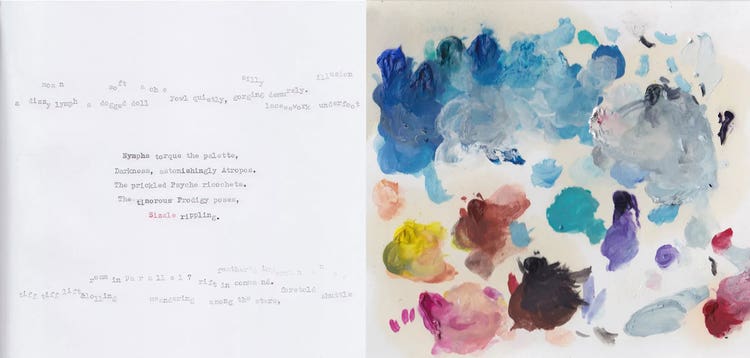 moon soft ache silly illusion
a dizzy lymph a dogged doll yowl quietly, gorging demurely. lacework underfoot
Nymphs torque the palette,
Darkness, astonishingly Atropos.
The prickled Psyche ricochets.
The tinorous Prodigy poses,
Sizzle rippling.
room in Parallel? rift in command.
tiff tiff lift meandering among the stars, foretold shuttle